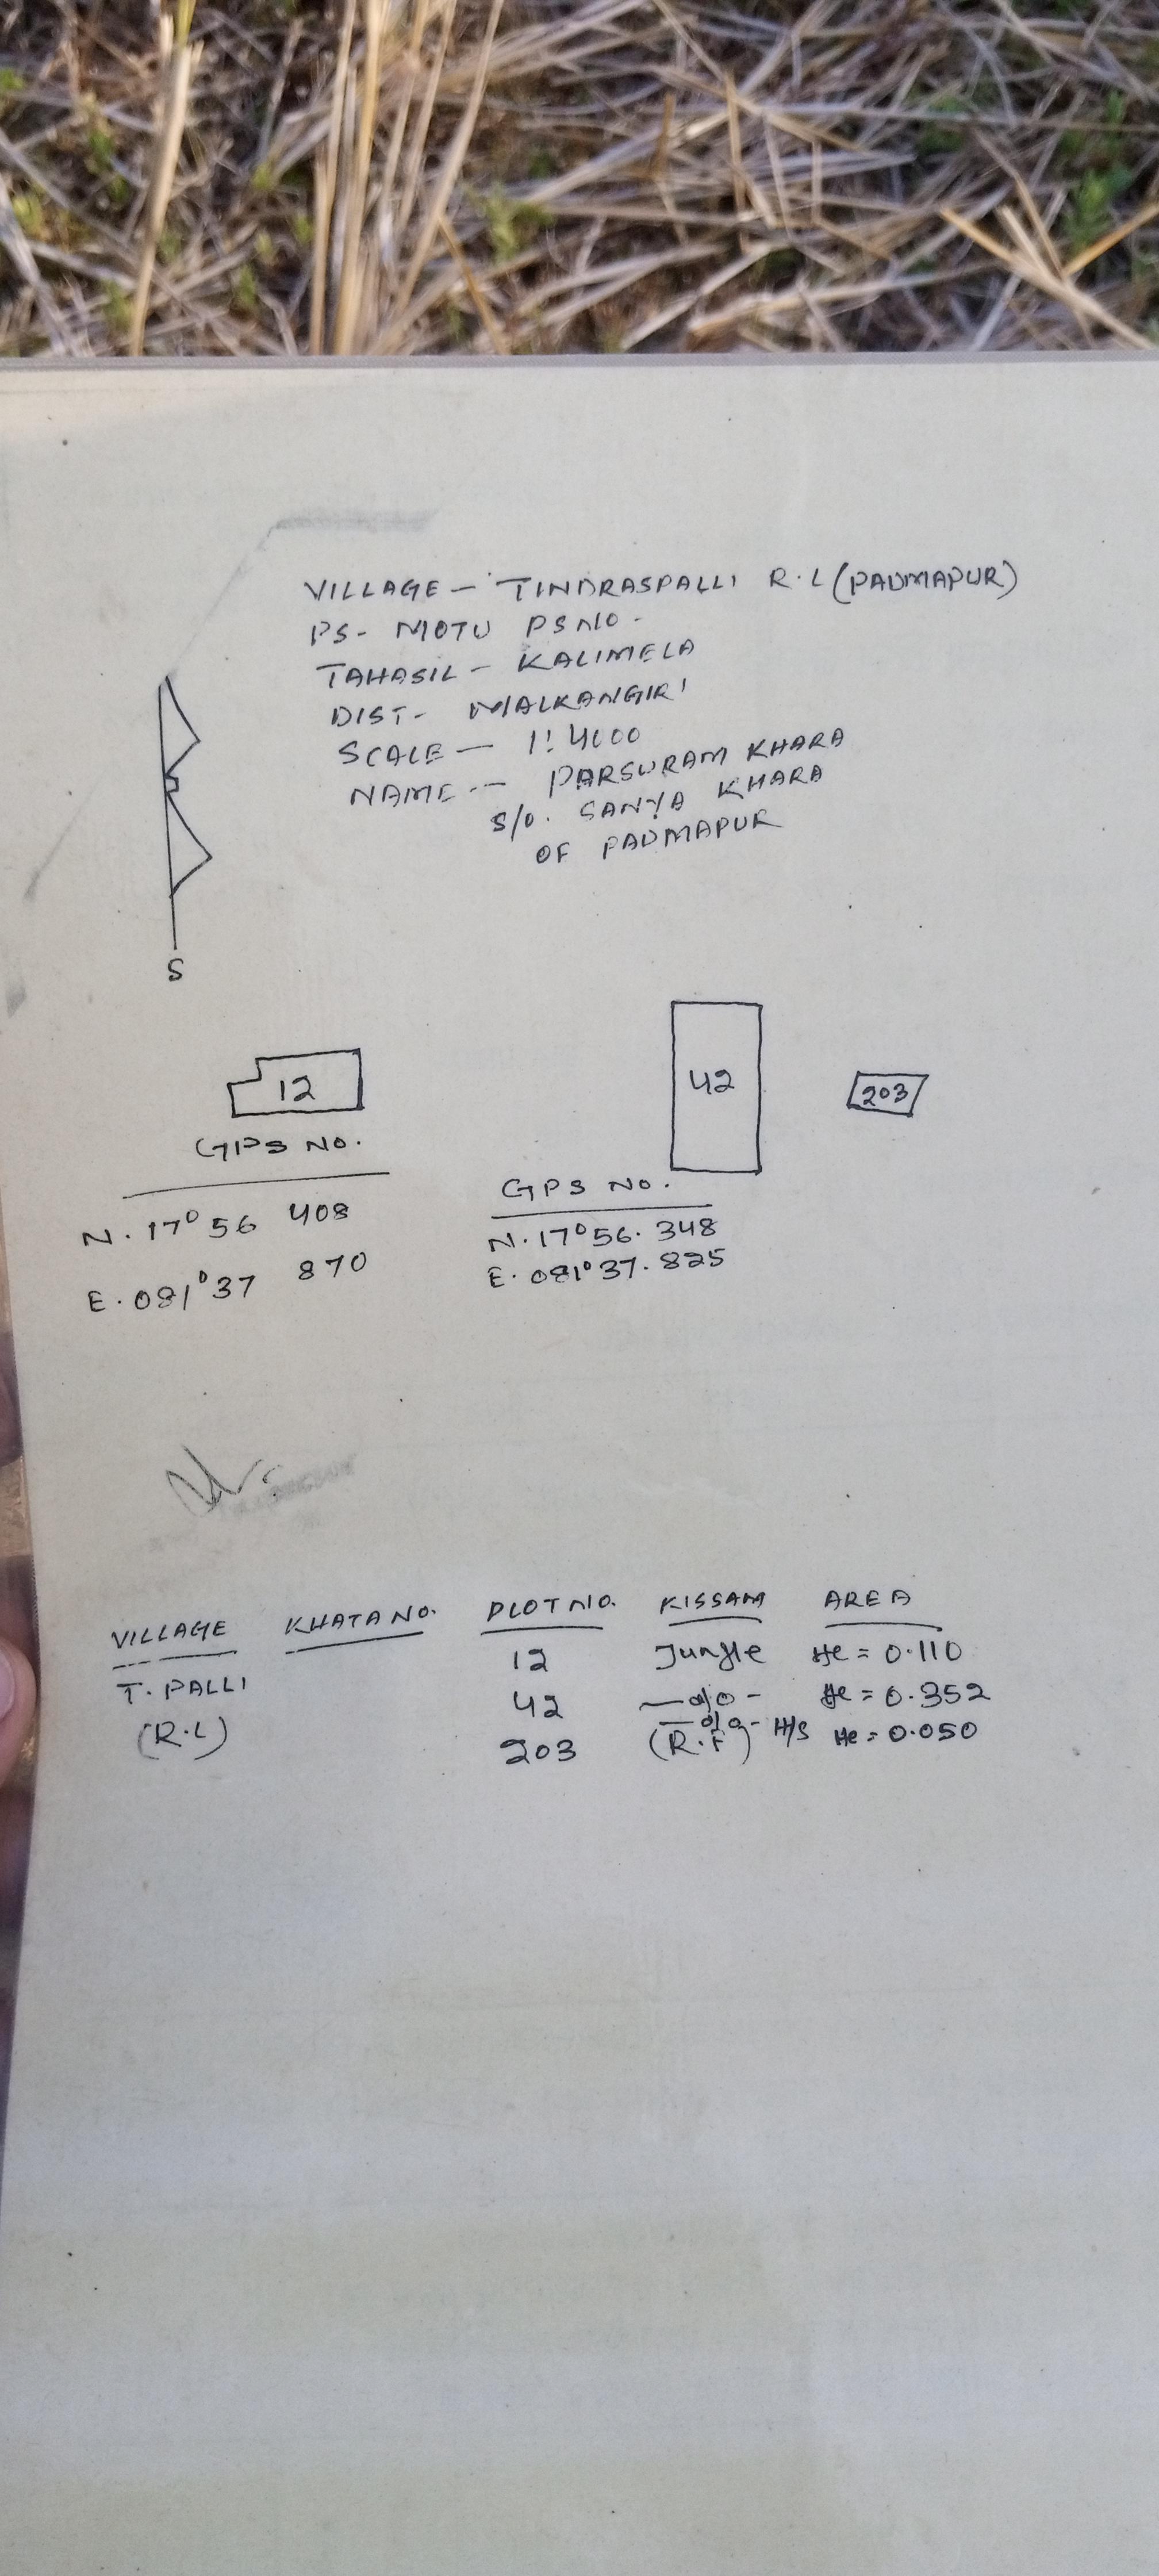 VILLAGE - TINDRASPALLI R.L (PADMAPUR)
PS - MOTU PS NO -
TAHASIL - KALIMELA
DIST - MALKANGIRI
SCALE - 1:4000
NAME - PARSURAM KHARA
S/O. SANYA KHARA
OF PADMAPUR
S
12
42
203
GPS NO.
N. 17° 56 408
E. 081° 37 870
GPS NO.
N. 17° 56. 348
E. 081° 37. 825
VILLAGE KHATA NO. PLOT NO. KISSAM AREA
T. PALLI 12 Jungle He = 0.110
(R.L) 42 - d/o - He = 0.352
203 - d/o - (R.F) H/S He = 0.050